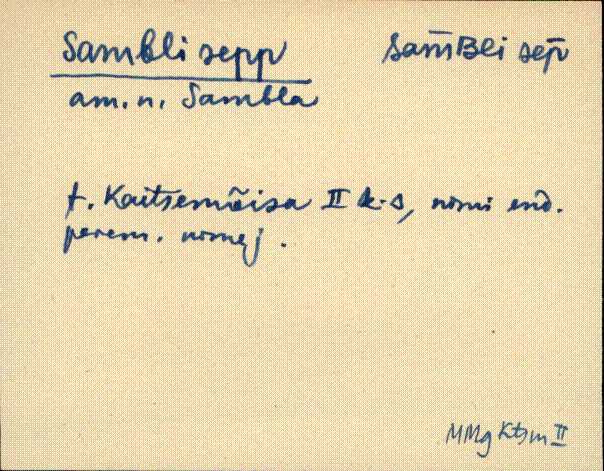 Sambli sepp   sam̄Bli sep̄
am. n. Sambla
t. Kaitsemõisa II k-s, nimi end.
perem. nimej.
MMg Ktsm II